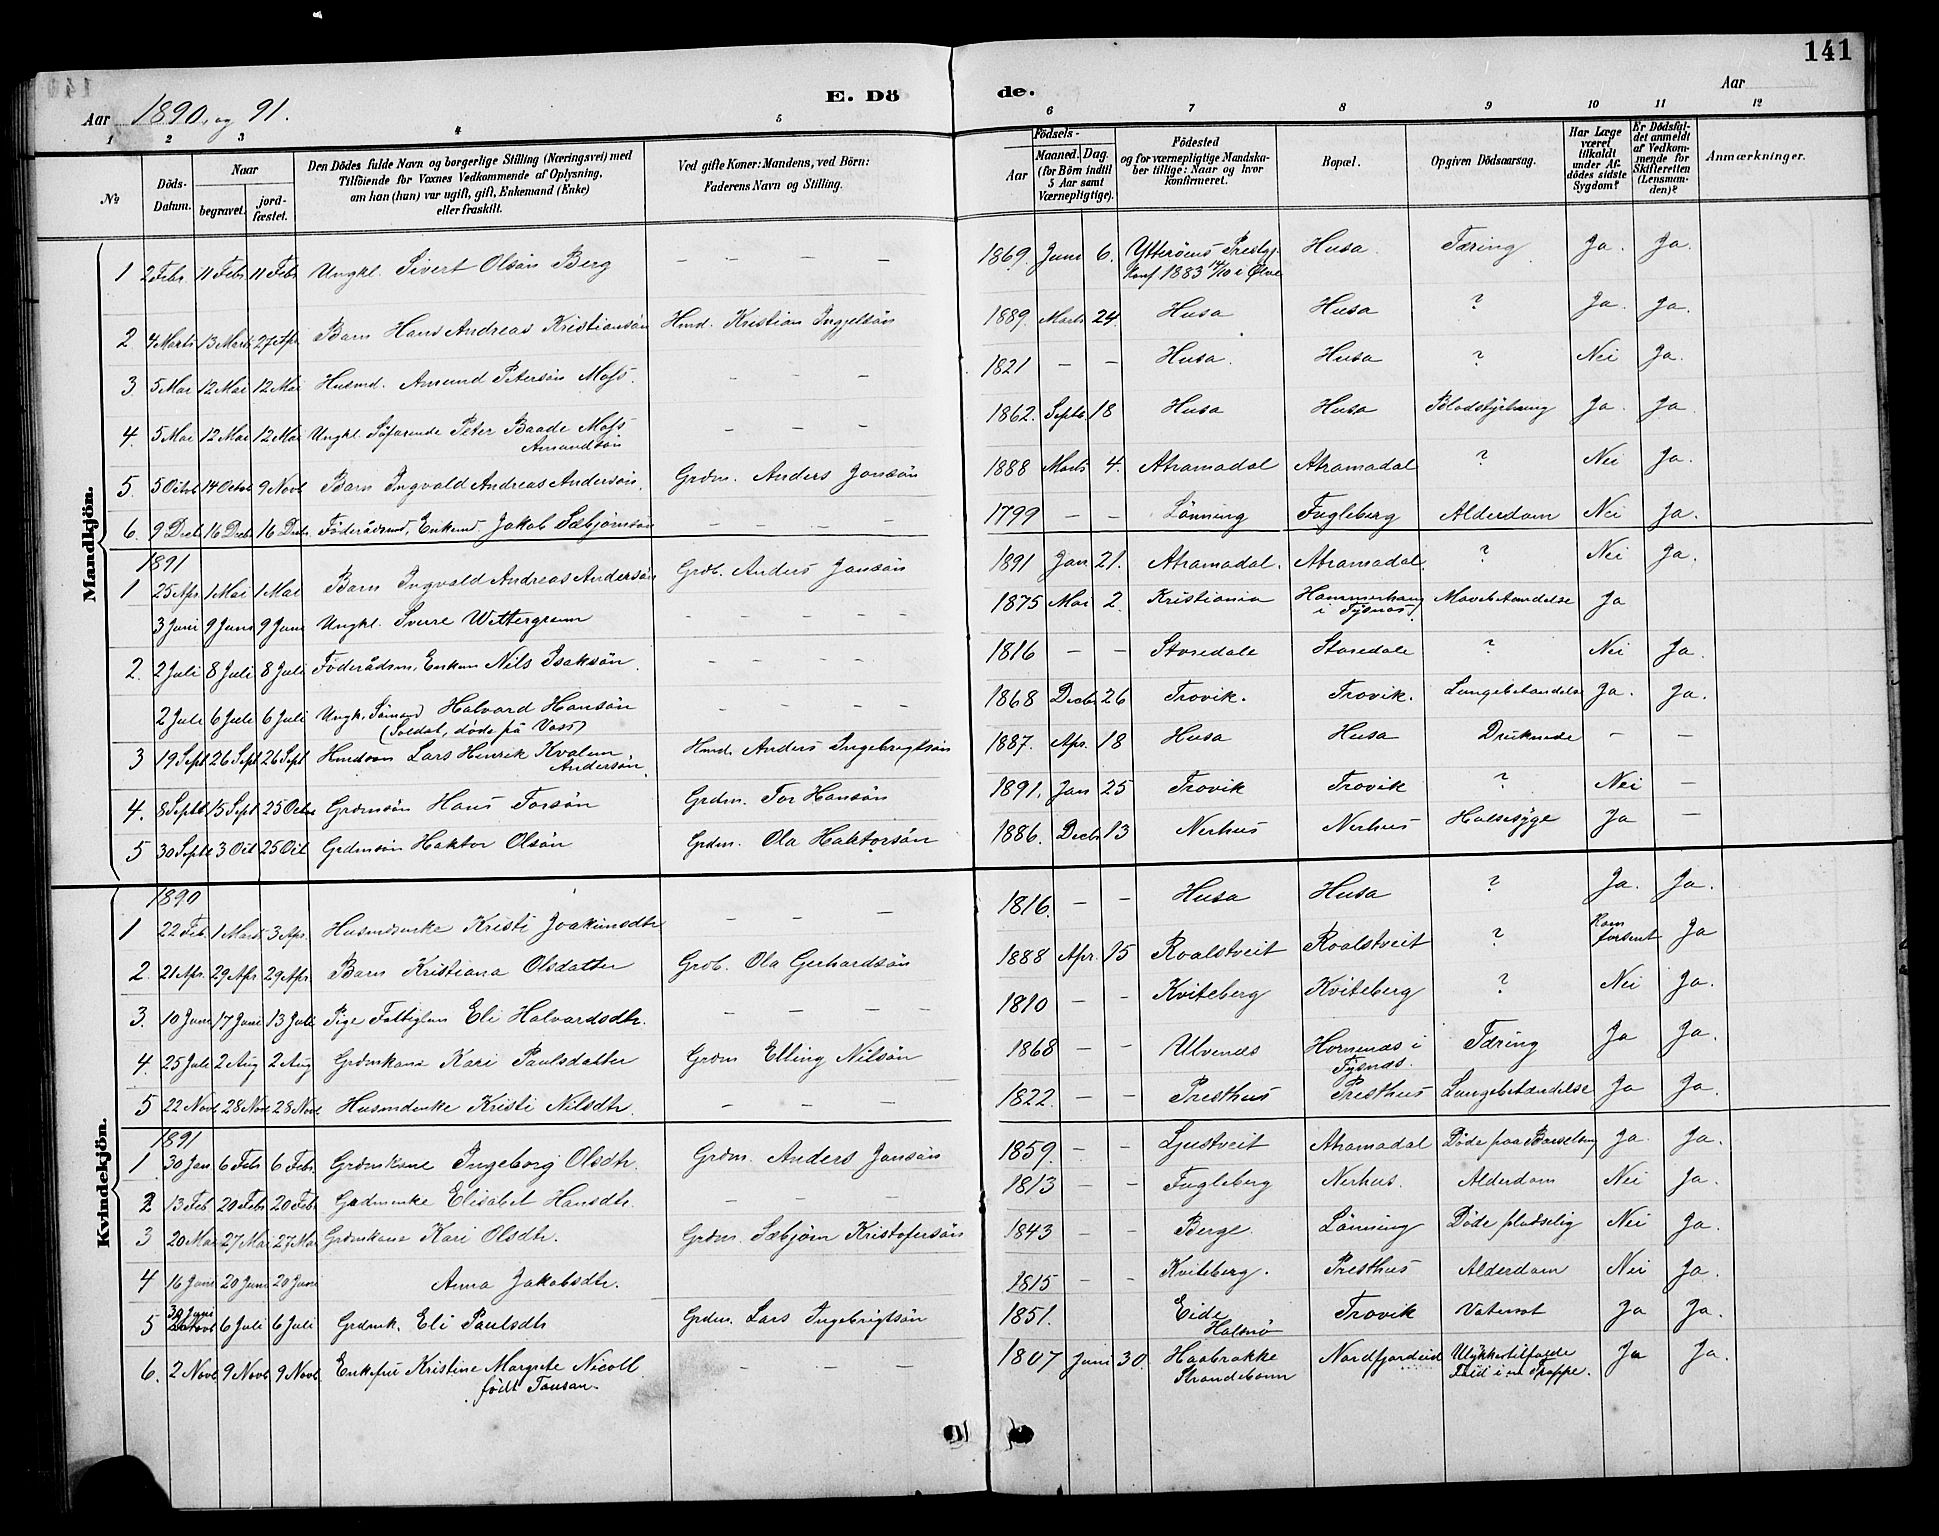 141
Aar 1890 og 91. E. Dö de. Aar
1 2 3 4 5 6 7 8 9 10 11 12
№ Döds-Datum. Naar begravet. jordfæstet. Den Dödes fulde Navn og borgerlige Stilling (Næringsvei) med Tilföiende for Voxnes Vedkommende af Oplysning, om han (hun) var ugift, gift, Enkemand (Enke) eller fraskilt. Ved gifte Koner: Mandens, ved Börn: Faderens Navn og Stilling. Födsels- Aar Maaned. Dag. (for Börn indtil 5 Aar samt Værnepligtige). Födested og for værnepligtige Mandskaber tillige: Naar og hvor konfirmeret. Bopæl. Opgiven Dödsaarsag. Har Læge været tilkaldt under Afdödes sidste Sygdom? Er Dödsfaldet anmeldt af Vedkommende for Skifteretten (Lensmanden)? Anmærkninger.
Mandkjön.
1 2 Febr 11 Febr 11 Febr Ungkl. Sivert Olsön Berg — — — 1869 Juni 6. Ytteröens Prestgj. Konf 1883 14/10 i Ölve Husa. Tæring Ja. Ja.
2 4 Marts 13 Marts 27 Apr Barn Hans Andreas Kristiansön Hmd. Kristian Ingjelsön 1889. Marts 24. Husa Husa ? Ja. Ja.
3 5 Mai 12 Mai 12 Mai Husmd. Amund Petersön Mofs. — — — 1821 — — Husa. Husa ? Nei Ja.
4. 5 Mai 12 Mai 12 Mai Ungkl. Söfarende Peter Baade Mofs Amundsön — — — 1862. Septb 18 Husa Husa Blodstyrtning Ja. Ja.
5. 5 Octob 14 Octob 9 Novb Barn Ingvald Andreas Andersön. Grdm. Anders Jansön 1888 Marts 4. Atramadal Atramadal ? Nei Ja.
6. 9 Decb 16 Decb 16 Decb. Föderådsmd, Enkemd Jakob Sæbjörnsön — — — 1799 — — Lönning Fugleberg Alderdom Nei Ja.
1891
1 25 Apr 1 Mai 1 Mai Barn Ingvald Andreas Andersön Grdb. Anders Jansön 1891 Jan 21. Atramadal. Atramadal. ? Nei Ja.
3 Juni 9 Juni 9 Juni Ungkl. Sverre Wettergreen — — — 1875 Mai 2. Kristiania Hammerhaug i Tysnæs Mavebetændelse Ja
2. 2 Juli 8 Juli 8 Juli Föderådsm. Enkem Nils Isaksön. — — — — 1816 — — Storedale Storedale ? Nei Ja.
2 Juli 6 Juli 6 Juli Ungk. Sömand Halvard Hansön (Soldat, döde på Voss) — — — — 1868 Decbr 26 Trovik. Trovik. Lungebetændelse Ja. Ja.
3 19 Sept 26 Sept 26 Sept Hmdsön Lars Henrik Kvalem Andersön. Hmd. Anders Ingebrigtsön 1887. Apr. 18 Husa Husa Druknede — —
4. 8 Septb 15 Sept 25 Octbr Grdmsön Hans Torsön Grdm. Tor Hansön 1891. Jan 25 Trovik Trovik ? Nei —
5 30 Septb 3 Oct 25 Oct Grdmsön Haktor Olsön Grdm. Ola Haktorsön 1886. Decbr 13 Nerhus Nerhus Halssyge Ja —
Kvindekjön.
1890
1 22 Feb. 1 Marts 3 Apr. Husmdsenke Kristi Joakimsdtr — — — 1816. — — Husa Husa ? Ja. Ja.
2. 21 Apr. 29 Apr 29 Apr. Barn Kristiana Olsdatter Grdb. Ola Gerhardsön 1888 Apr. 15 Roalstveit Roalstveit ? Kom forsent Ja
3. 10 Juni 17 Juni 13 Juli Pige Fattiglem Eli Halvardsdtr. — — — 1810 — — Kviteberg Kviteberg ? Nei Ja.
4. 25 Juli 2 Aug 2 Aug Grdmkone Kari Paulsdatter Grdm Elling Nilsön 1868 — — Ulvenæs Hornenæs i Tysnæs. Tæring Ja Ja.
5 22 Novb 28 Nov 28 Novb Husmdenke Kristi Nilsdtr. — — — 1822. — — Presthus Presthus Lungebetændelse Ja Ja.
1891
1 30 Jan 6 Febr 6 Febr. Grdmkone Ingeborg Olsdtr. Grdm. Anders Jansön 1859. — — Ljustveit Atramadal Döde paa Barselseng Ja. Ja.
2 13 Feb 20 Febr 20 Feb Grdmenke Elisabet Hansdtr. — — — 1813 — — Fugleberg Nerhus. Alderdom Nei Ja.
3 20 Mai 27 Mai 27 Mai Grdmkone Kari Olsdtr. Grdm. Sæbjörn Kristofersön 1843 — — Berge. Lönning Döde pludselig Nei Ja.
4 16 Juni 20 Juni 20 Juni Anna Jakobsdtr. 1815 — — Kviteberg. Presthus Alderdom Nei Ja.
5 30 Juni 6 Juli 6 Juli Grdmk. Eli Paulsdtr Grdm. Lars Ingebrigtsön 1851. Eide Halsnö Trovik Vatersot Ja Ja.
6. 2 Novb 9 Novb 9 Novb Enkefru Kristine Margrete Nicoll födt Tausan. — — — 1807 Juni 30. Haabrokke Strandebarm Nordfjordeid Ulykkestilfælde Fald i en Trappe. Ja Ja.